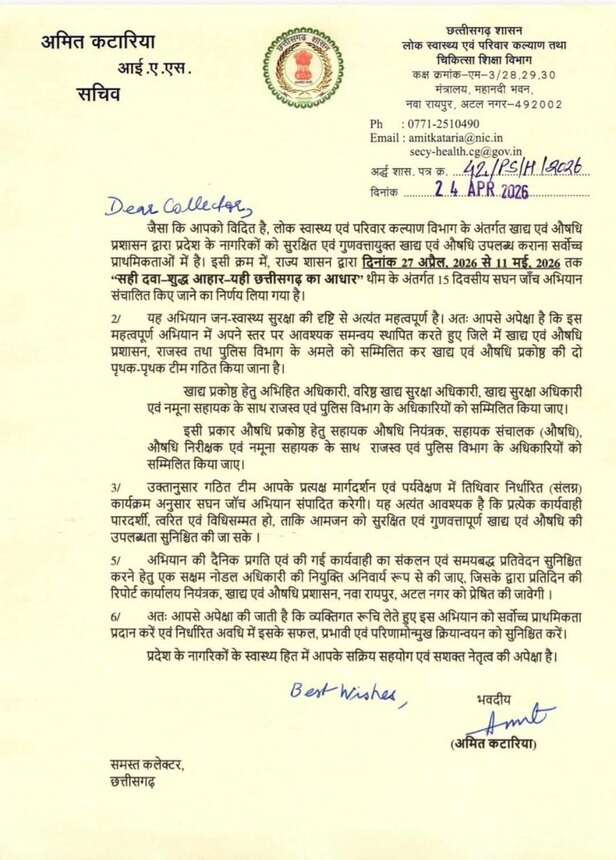 अमित कटारिया
आई.ए.एस.
सचिव
छत्तीसगढ़ शासन
छत्तीसगढ़ शासन
लोक स्वास्थ्य एवं परिवार कल्याण तथा
चिकित्सा शिक्षा विभाग
कक्ष क्रमांक-एम-3/28,29,30
मंत्रालय, महानदी भवन,
नवा रायपुर, अटल नगर-492002
Ph : 0771-2510490
Email : amitkataria@nic.in
secy-health.cg@gov.in
अर्द्ध शास. पत्र क्र. 42/PS/H/2026
दिनांक 24 APR 2026
Dear Collector,
जैसा कि आपको विदित है, लोक स्वास्थ्य एवं परिवार कल्याण विभाग के अंतर्गत खाद्य एवं औषधि
प्रशासन द्वारा प्रदेश के नागरिकों को सुरक्षित एवं गुणवत्तायुक्त खाद्य एवं औषधि उपलब्ध कराना सर्वोच्च
प्राथमिकताओं में है। इसी क्रम में, राज्य शासन द्वारा दिनांक 27 अप्रैल, 2026 से 11 मई, 2026 तक
“सही दवा–शुद्ध आहार–यही छत्तीसगढ़ का आधार” थीम के अंतर्गत 15 दिवसीय सघन जाँच अभियान
संचालित किए जाने का निर्णय लिया गया है।
2/ यह अभियान जन-स्वास्थ्य सुरक्षा की दृष्टि से अत्यंत महत्वपूर्ण है। अतः आपसे अपेक्षा है कि इस
महत्वपूर्ण अभियान में अपने स्तर पर आवश्यक समन्वय स्थापित करते हुए जिले में खाद्य एवं औषधि
प्रशासन, राजस्व तथा पुलिस विभाग के अमले को सम्मिलित कर खाद्य एवं औषधि प्रकोष्ठ की दो
पृथक-पृथक टीम गठित किया जाना है।
खाद्य प्रकोष्ठ हेतु अभिहित अधिकारी, वरिष्ठ खाद्य सुरक्षा अधिकारी, खाद्य सुरक्षा अधिकारी
एवं नमूना सहायक के साथ राजस्व एवं पुलिस विभाग के अधिकारियों को सम्मिलित किया जाए।
इसी प्रकार औषधि प्रकोष्ठ हेतु सहायक औषधि नियंत्रक, सहायक संचालक (औषधि),
औषधि निरीक्षक एवं नमूना सहायक के साथ राजस्व एवं पुलिस विभाग के अधिकारियों को
सम्मिलित किया जाए।
3/ उक्तानुसार गठित टीम आपके प्रत्यक्ष मार्गदर्शन एवं पर्यवेक्षण में तिथिवार निर्धारित (संलग्न)
कार्यक्रम अनुसार सघन जाँच अभियान संपादित करेगी। यह अत्यंत आवश्यक है कि प्रत्येक कार्यवाही
पारदर्शी, त्वरित एवं विधिसम्मत हो, ताकि आमजन को सुरक्षित एवं गुणवत्तापूर्ण खाद्य एवं औषधि की
उपलब्धता सुनिश्चित की जा सके ।
5/ अभियान की दैनिक प्रगति एवं की गई कार्यवाही का संकलन एवं समयबद्ध प्रतिवेदन सुनिश्चित
करने हेतु एक सक्षम नोडल अधिकारी की नियुक्ति अनिवार्य रूप से की जाए, जिसके द्वारा प्रतिदिन की
रिपोर्ट कार्यालय नियंत्रक, खाद्य एवं औषधि प्रशासन, नवा रायपुर, अटल नगर को प्रेषित की जावेगी ।
6/ अतः आपसे अपेक्षा की जाती है कि व्यक्तिगत रूचि लेते हुए इस अभियान को सर्वोच्च प्राथमिकता
प्रदान करें एवं निर्धारित अवधि में इसके सफल, प्रभावी एवं परिणामोन्मुख क्रियान्वयन को सुनिश्चित करें।
प्रदेश के नागरिकों के स्वास्थ्य हित में आपके सक्रिय सहयोग एवं सशक्त नेतृत्व की अपेक्षा है।
Best Wishes,
भवदीय
Amit
(अमित कटारिया)
समस्त कलेक्टर,
छत्तीसगढ़